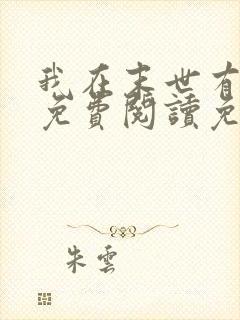 我在末世有
免費閱讀免
朱雲